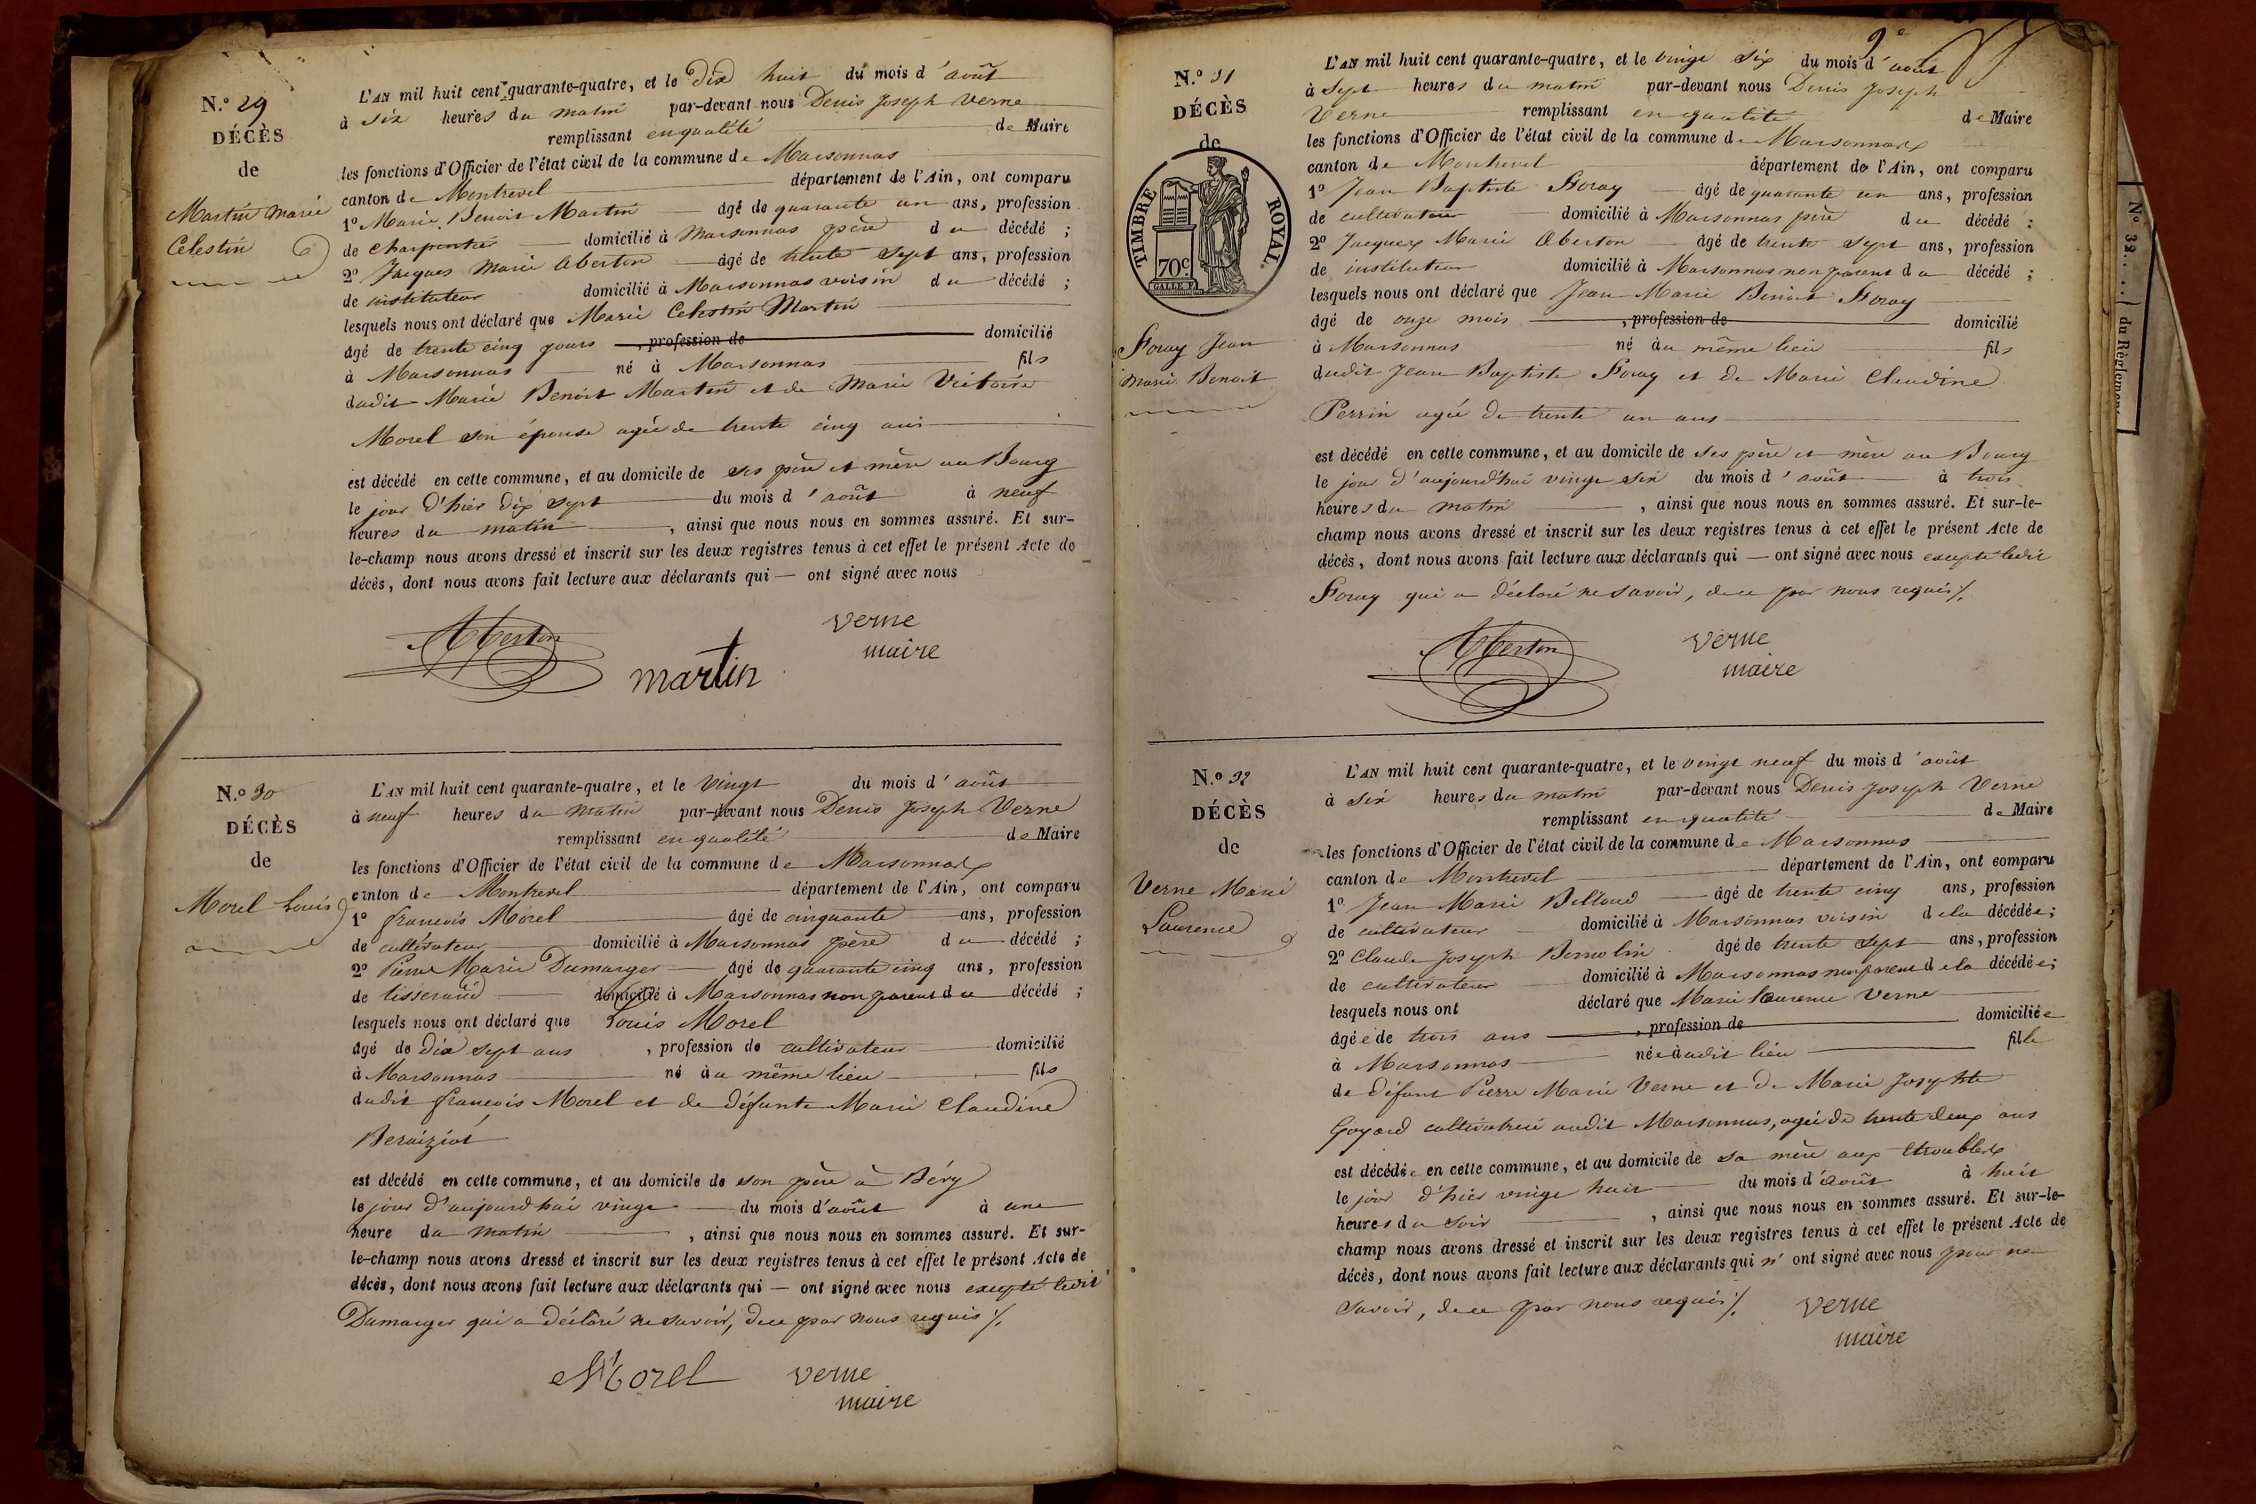 N.º 29
DÉCÈS
de
Martin Marie
Celestin
L'AN mil huit cent quarante-quatre, et le dix huit du mois d'août
à six heures du matin par-devant nous Denis Joseph Verne
remplissant en qualité de Maire
les fonctions d'Officier de l'état civil de la commune de Marsonnas
canton de Montrevel département de l'Ain, ont comparu
1º Marie Benoit Martin âgé de quarante un ans, profession
de charpentier domicilié à Marsonnas père du décédé ;
2º Jacques Marie Aberton âgé de trente sept ans, profession
de instituteur domicilié à Marsonnas voisin du décédé ;
lesquels nous ont déclaré que Marie Celestin Martin
âgé de trente cinq jours , profession de domicilié
à Marsonnas né à Marsonnas fils
dudit Marie Benoit Martin et de Marie Victoire
Morel son épouse agée de trente cinq ans
est décédé en cette commune, et au domicile de ses père et mère au Bourg
le jour d'hier dix sept du mois d'août à neuf
heures du matin , ainsi que nous nous en sommes assuré. Et sur-
le-champ nous avons dressé et inscrit sur les deux registres tenus à cet effet le présent Acte de
décès, dont nous avons fait lecture aux déclarants qui — ont signé avec nous
Aberton
martin
verne
maire
N.º 30
DÉCÈS
de
Morel Louis
L'AN mil huit cent quarante-quatre, et le vingt du mois d'août
à neuf heures du matin par-devant nous Denis Joseph Verne
remplissant en qualité de Maire
les fonctions d'Officier de l'état civil de la commune de Marsonnas
canton de Montrevel département de l'Ain, ont comparu
1º françois Morel âgé de cinquante ans, profession
de cultivateur domicilié à Marsonnas père du décédé ;
2º Pierre Marie Damarger âgé de quarante cinq ans, profession
de tisserand domicilié à Marsonnas non parent du décédé ;
lesquels nous ont déclaré que Louis Morel
âgé de dix sept ans , profession de cultivateur domicilié
à Marsonnas né au même lieu fils
dudit françois Morel et de défunte Marie Claudine
est décédé en cette commune, et au domicile de son père à Béry
le jour d'aujourd'hui vingt du mois d'août à une
heure du matin , ainsi que nous nous en sommes assuré. Et sur-
le-champ nous avons dressé et inscrit sur les deux registres tenus à cet effet le présent Acte de
décès, dont nous avons fait lecture aux déclarants qui — ont signé avec nous excepté ledit
Damarger qui a déclaré ne savoir, de ce par nous requis %.
Morel
verne
maire
2e
N.º 31
DÉCÈS
de
TIMBRE ROYAL
70c.
Foray Jean
Marie Benoit
L'AN mil huit cent quarante-quatre, et le vingt six du mois d'août
à sept heures du matin par-devant nous Denis Joseph
Verne remplissant en qualité de Maire
les fonctions d'Officier de l'état civil de la commune de Marsonnas
canton de Montrevel département de l'Ain, ont comparu
1º Jean Baptiste Foray âgé de quarante un ans, profession
de cultivateur domicilié à Marsonnas père du décédé ;
2º Jacques Marie Aberton âgé de trente sept ans, profession
de instituteur domicilié à Marsonnas non parent du décédé ;
lesquels nous ont déclaré que Jean Marie Benoit Foray
âgé de onze mois , profession de domicilié
à Marsonnas né au même lieu fils
dudit Jean Baptiste Foray et de Marie Claudine
Perrin agée de trente un ans
est décédé en cette commune, et au domicile de ses père et mère au Bourg
le jour d'aujourd'hui vingt six du mois d'août à trois
heures du matin , ainsi que nous nous en sommes assuré. Et sur-le-
champ nous avons dressé et inscrit sur les deux registres tenus à cet effet le présent Acte de
décès, dont nous avons fait lecture aux déclarants qui — ont signé avec nous excepté ledit
Foray qui a déclaré ne savoir, de ce par nous requis %.
Aberton
verne
maire
N.º 32
DÉCÈS
de
Verne Marie
Laurence
L'AN mil huit cent quarante-quatre, et le vingt neuf du mois d'août
à six heures du matin par-devant nous Denis Joseph Verne
remplissant en qualité de Maire
les fonctions d'Officier de l'état civil de la commune de Marsonnas
canton de Montrevel département de l'Ain, ont comparu
1º Jean Marie Billoud âgé de trente cinq ans, profession
de cultivateur domicilié à Marsonnas voisin de la décédée ;
2º Claude Joseph âgé de trente sept ans, profession
de cultivateur domicilié à Marsonnas non parent de la décédée ;
lesquels nous ont déclaré que Marie Laurence Verne
âgée de trois ans , profession de domiciliée
à Marsonnas née audit lieu fille
de défunt Pierre Marie Verne et de Marie Josephte
Goyard cultivatrice audit Marsonnas, agée de trente deux ans
est décédée en cette commune, et au domicile de sa mère aux
le jour d'hier vingt huit du mois d'août à huit
heures du soir , ainsi que nous nous en sommes assuré. Et sur-le-
champ nous avons dressé et inscrit sur les deux registres tenus à cet effet le présent Acte de
décès, dont nous avons fait lecture aux déclarants qui n'ont signé avec nous pour ne
savoir, de ce par nous requis %.
verne
maire
du Règlement